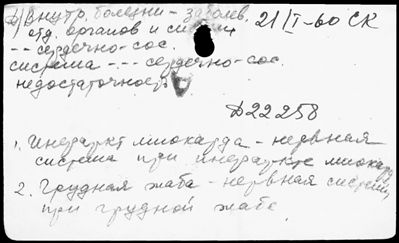 б) Внутр. болезни - заболев. 21/I-60 СК
отд. органов и систем
-- сердечно-сос.
система --- сердечно-сос.
недостаточность
Д22258
1. Инфаркт миокарда - нервная
система при инфаркте миокарда
2. Грудная жаба - нервная система
при грудной жабе.